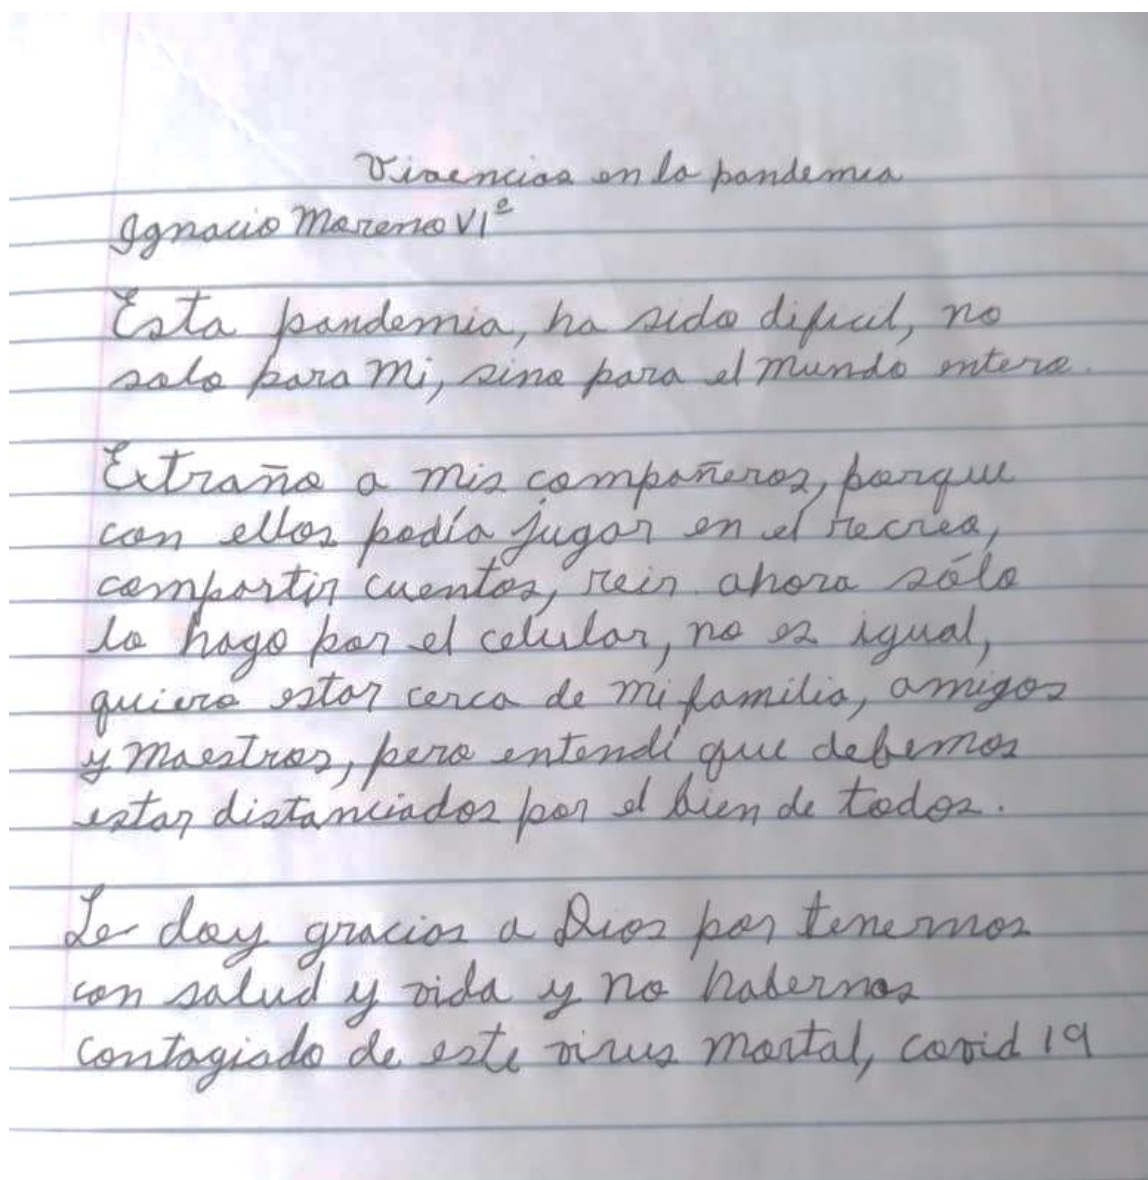 Vivencias en la pandemia
Ignacio Moreno VIº
Esta pandemia, ha sido dificil, no
solo para mi, sino para el mundo entero.
Extraño a mis compañeros, porque
con ellos podía jugar en el recreo,
compartir cuentos, reir. ahora sólo
lo hago por el celular, no es igual,
quiero estar cerca de mi familia, amigos
y maestros, pero entendí que debemos
estar distanciados por el bien de todos.
Le doy gracias a Dios por tenernos
con salud y vida y no habernos
contagiado de este virus mortal, covid 19